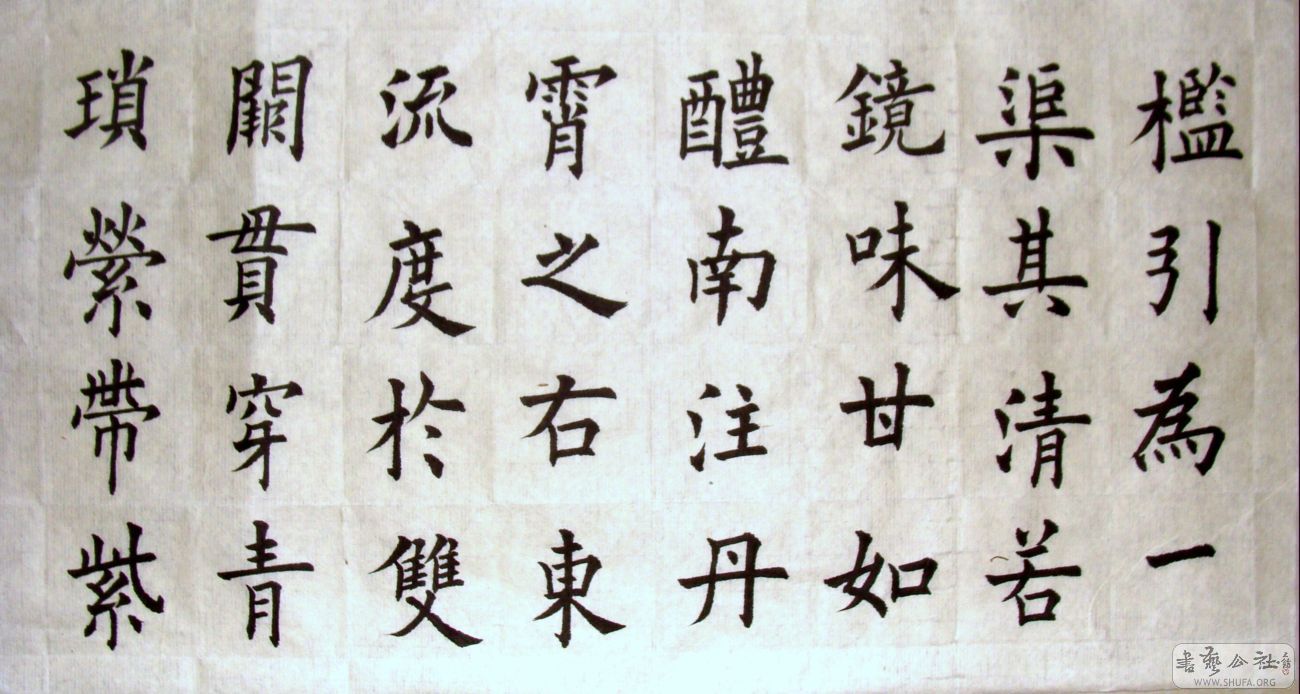 檻引為一
渠其清若
鏡味甘如
醴南注丹
霄之右東
流度於雙
闕貫穿青
瑣縈帶紫
書藝公社
WWW.SHUFA.ORG